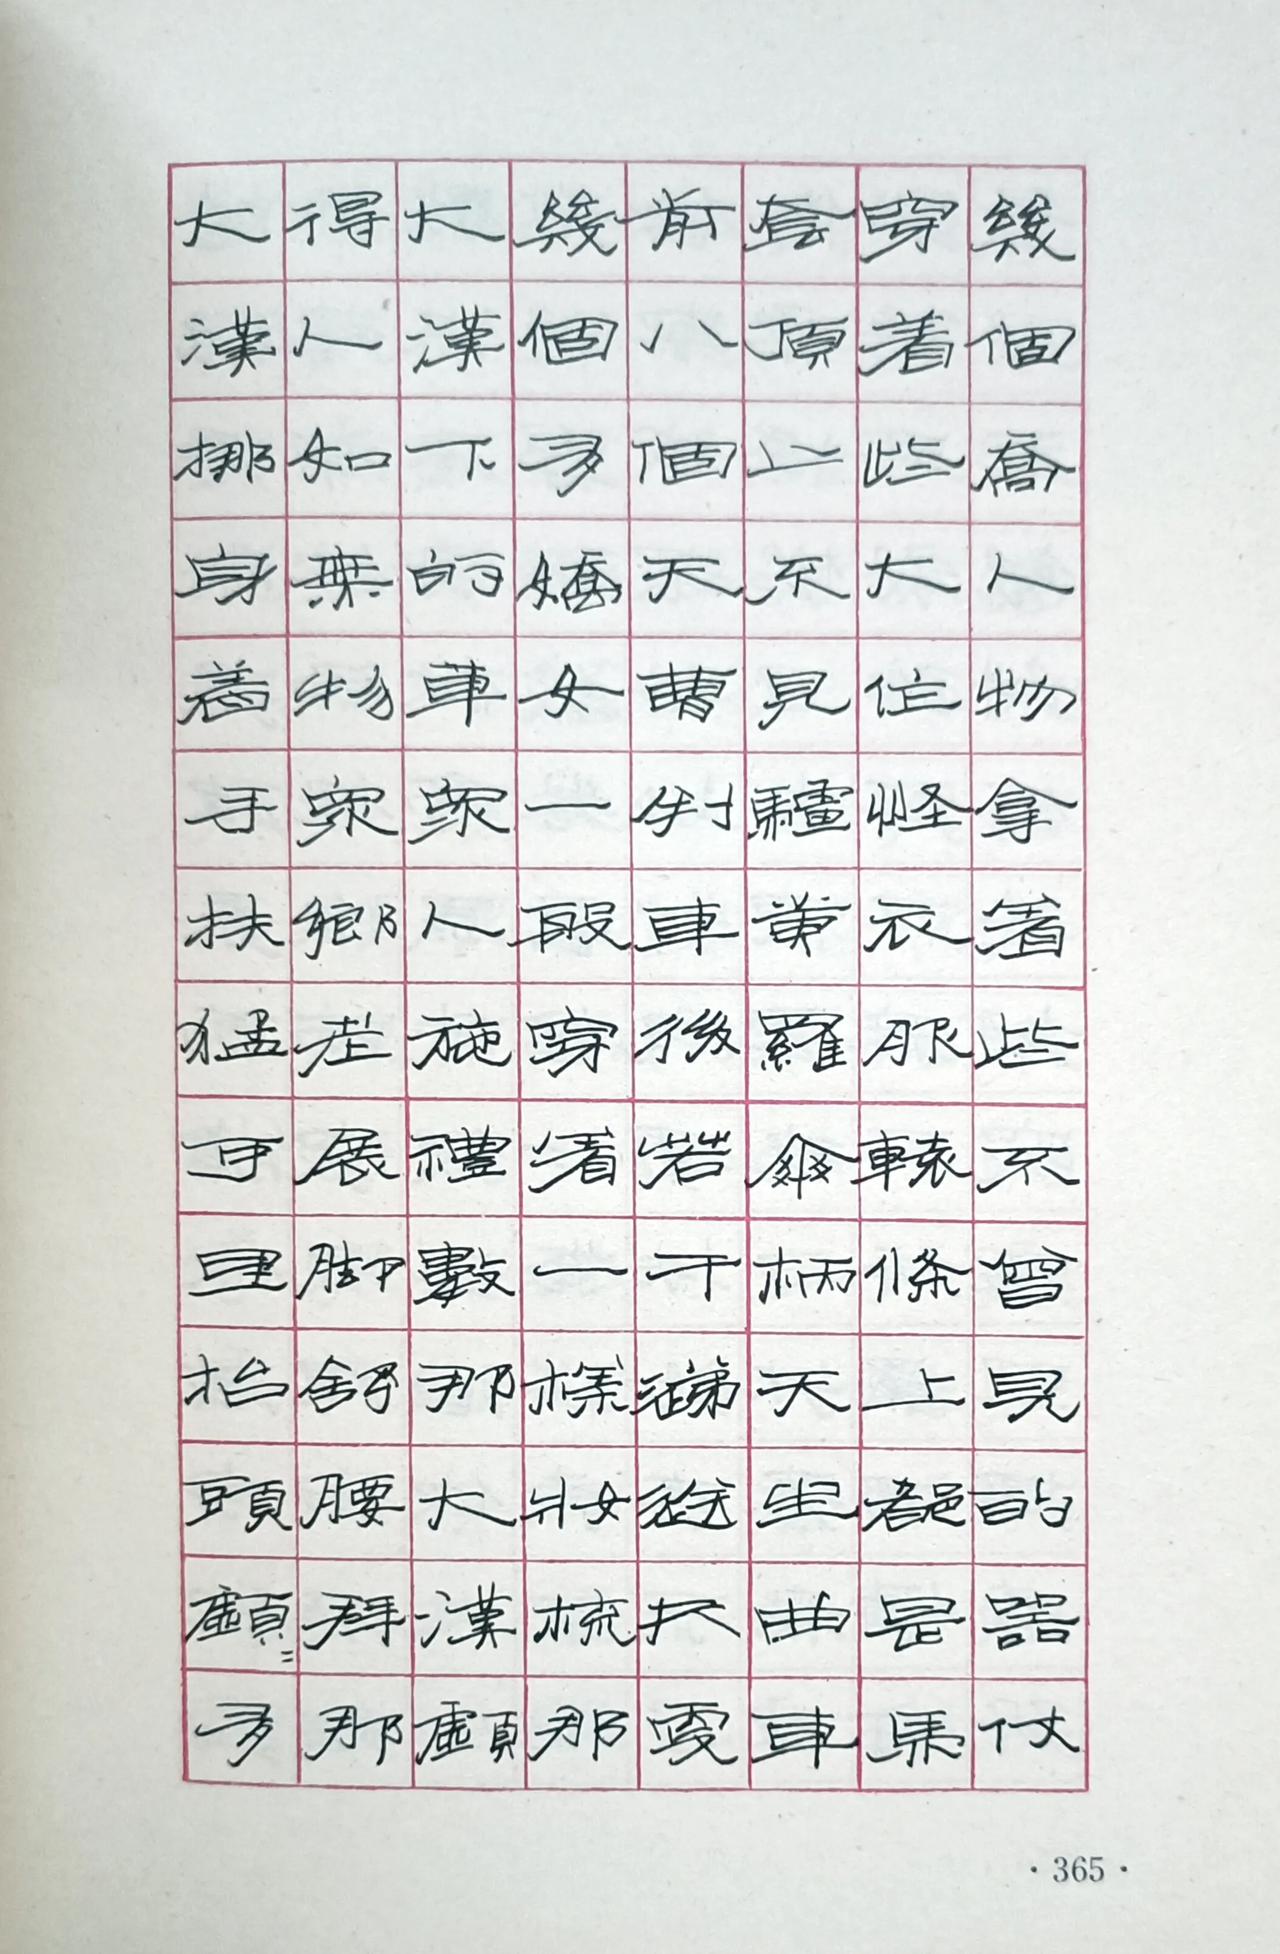 幾個喬人物拿着些不曾見的器仗
穿着些大作怪衣服轅條上都是馬
套頂上不見驢黃羅傘柄天生曲車
前八個天曹判車後若干遞送夫更
幾個多嬌女一般穿着一樣妝梳那
大漢下的車眾人施禮數那大漢覷
得人如無物眾鄉老展脚舒腰拜那
大漢挪身着手扶猛可里抬頭覷〻多
·365·